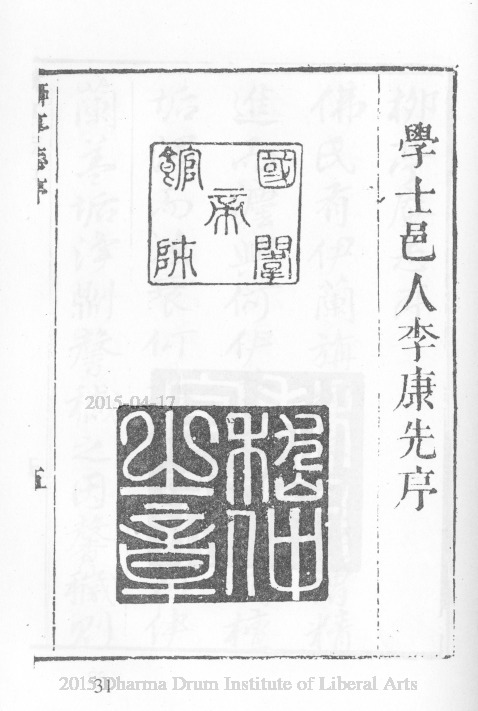 學士邑人李康先序
國
帝
館師
嵇仲
之章
五
2015-04-17
31
2015 Dharma Drum Institute of Liberal Arts